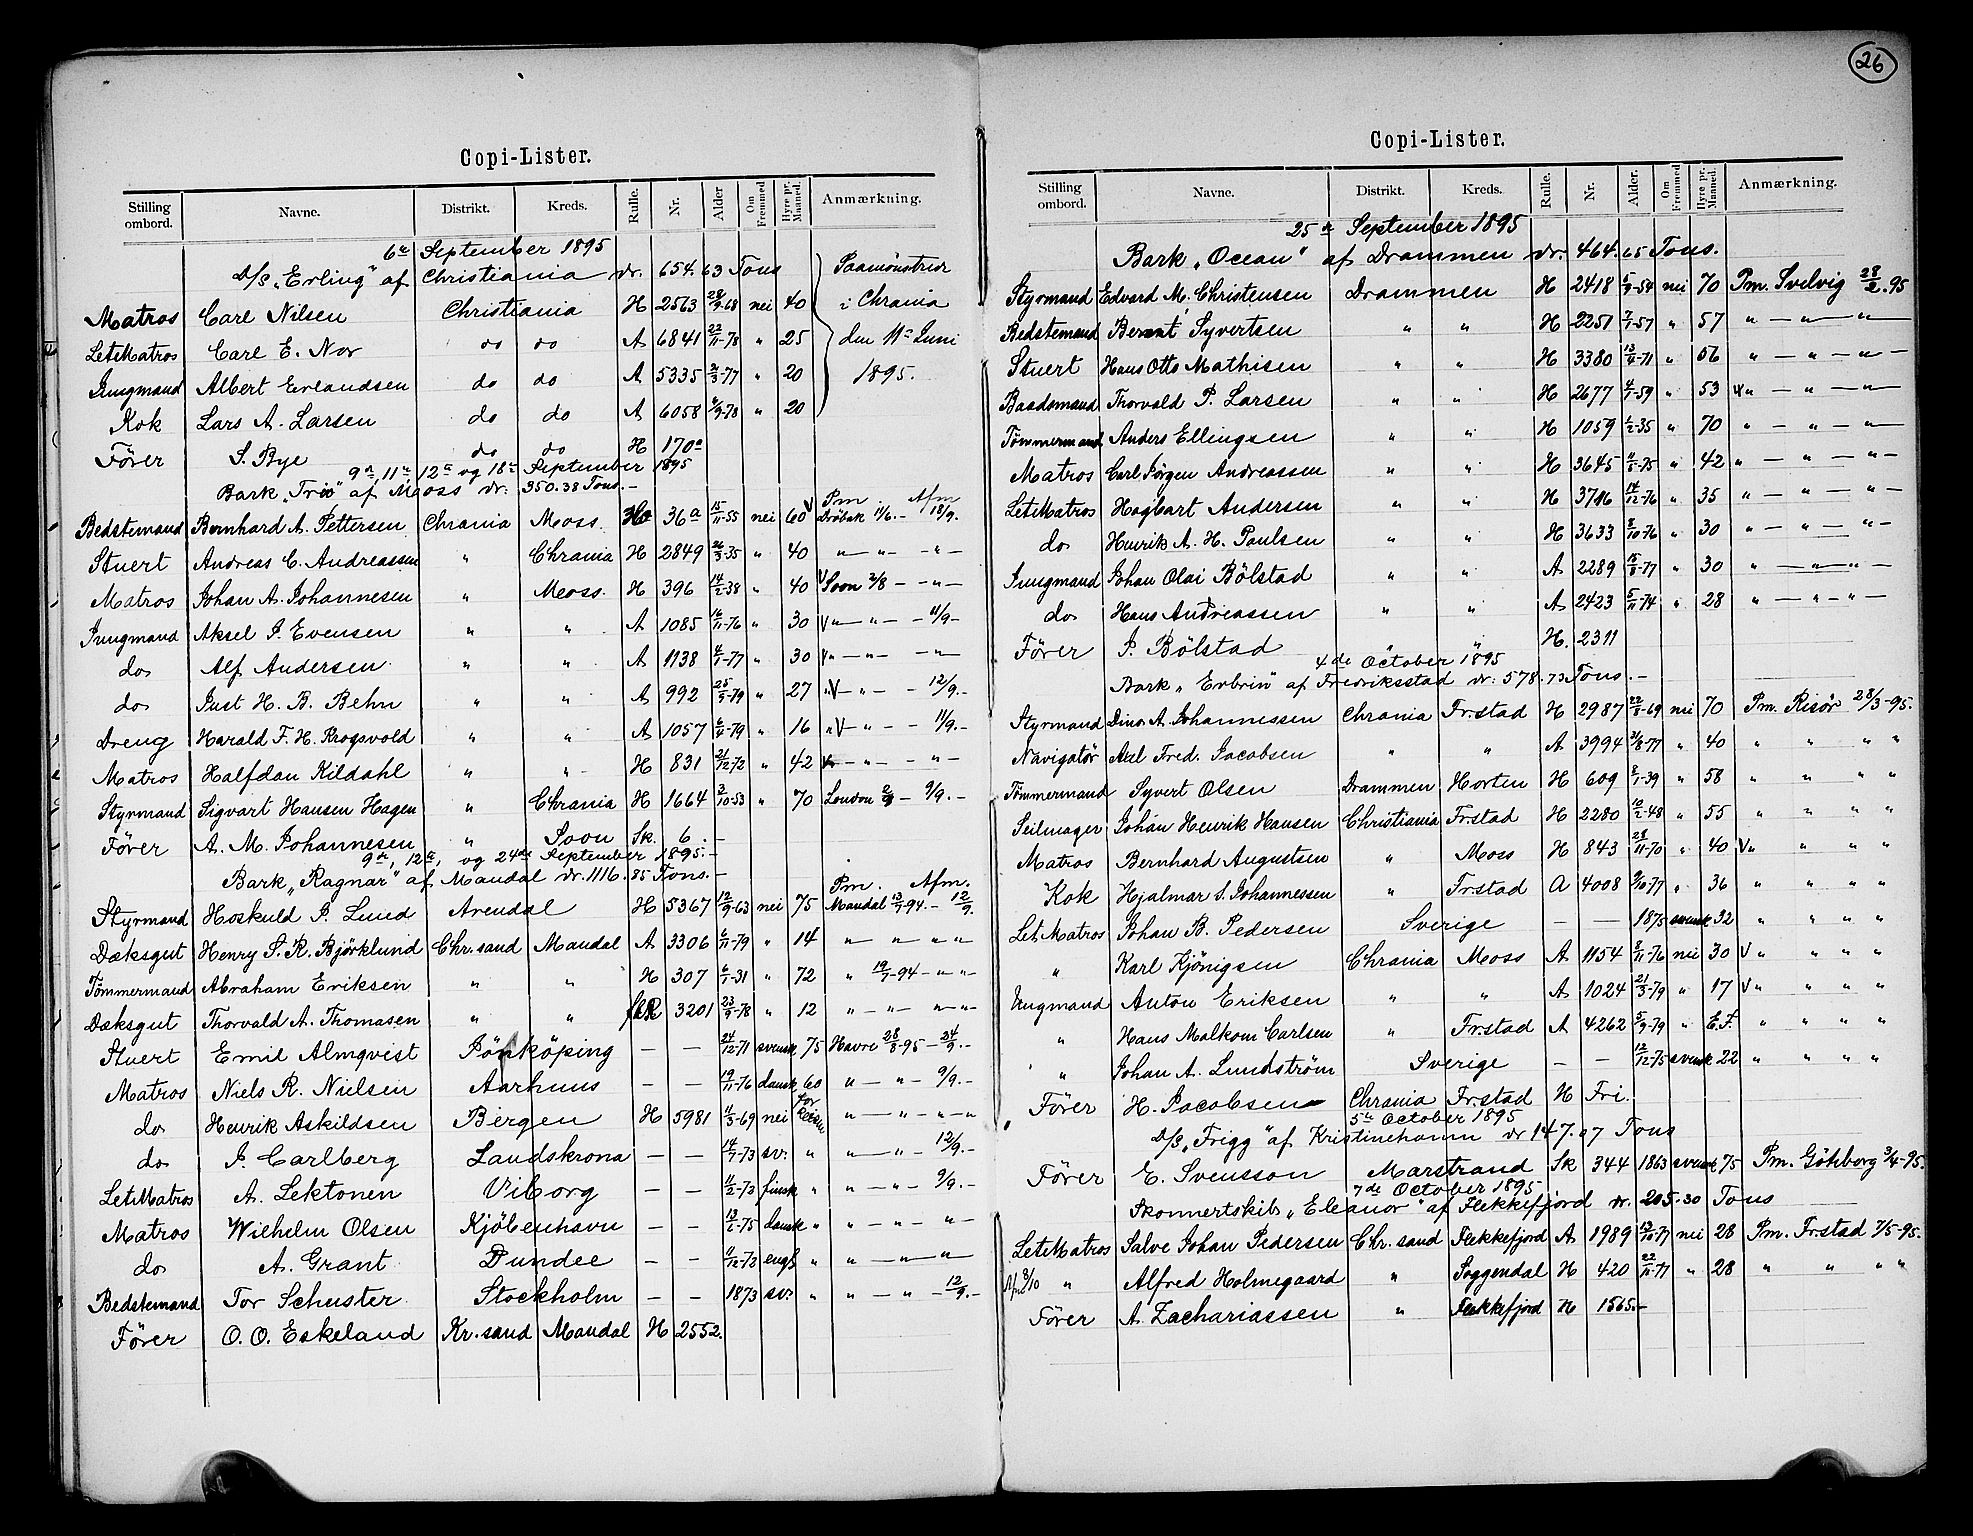 26
Copi-Lister.
Stilling ombord. Navne. Distrikt. Kreds. Rulle. Nr. Alder Om Fremmed Hyre pr. Maaned. Anmærkning.
6te September 1895
D/S „Erling" af Christiania dr. 654.63 Tons Paamönstrer
Matros Carl Nilsen Christiania H 2563 28/9-68 nei 40 i Chrania
LetMatros Carl E. Nor do do A 6841 22/11-78 " 25 den 11te Juni
Jungmand Albert Erlandsen do do A 5335 21/3-77 " 20 1895.
Kok Lars A. Larsen do do A 6058 9-78 " 20
Förer S. Bye do do H 170a
9de, 11te, 12te og 18te September 1895
Bark „Trio" af Moss dr: 350.38 Tons.-
Pm Afm
Bedstemand Bernhard A. Pettersen Chrania Moss. 36a 15/11-55 nei 60 V Dröbak 11/6.- 18/9.
Stuert Andreas C. Andreassen " Chrania H 2849 26/3-35 " 40 " " "
Matros Johan A. Johannesen " Moss. H 396 14/2-38 " 40 V Soon 2/8 - " -
Jungmand Aksel J. Evensen " " A 1085 16/11-76 " 30 V " - " - 11/9-
do Alf Andersen " " A 1138 4/1-77 " 30 V " - " - " -
do Just H. B. Behn " " A 992 25/9-79 " 27 " V - " - 12/9.-
Dreng Harald F. H. Krogsvold " " A 1057 6/11-79 " 16 " V - " - 11/9.-
Matros Halfdan Kildahl " " H 831 21/12-72 " 42 V " - " - " -
Styrmand Sigvart Hansen Hagen " Chrania H 1664 3/10-53 " 70 London - 9/9.-
Förer A. M. Johannesen " Soon Sk. 6.-
9de, 12te, og 24de September 1895.-
Bark „Ragnar" af Mandal dr. 1116.85 Tons.-
Pm. Afm.
Styrmand Hoskuld J. Lund Arendal H 5367 12/9-63 nei 75 Mandal 13/7-94.- 12/9.
Dæksgut Henry S. R. Björklund Chr.sand Mandal A 3306 6/11-79 " 14 " " " "
Tömmermand Abraham Eriksen " " H 307 6/1-31 " 72 " 19/7-94 - " "
Dæksgut Thorvald A. Thomasen " " 3201 23/9-78 " 12 " - " - " - "
Stuert Emil Almqvist Jönköping - - 24/12-71 svensk 75 Havre 28/8-95 - 24/9.-
Matros Niels R. Nielsen Aarhuus - - 19/11-76 dansk 60 " - " - 9/9.-
do Henrik Askildsen Bergen H 5981 11/3-69 nei for Reisen " - " - " - "
do J. Carlberg Landskrona - - 14/7-73 sv. " " - " - 12/9.-
LetMatros A. Lektonen Viborg - - 11/2-73 finsk " " - " - 9/9.-
Matros Wilhelm Olsen Kjöbenhavn - - 13/6-75 dansk " " - " - " -
do A. Grant Dundee - - 11/12-72 engl " " - " - "
Bedstemand Tor Schuster Stockholm - - 1873 sv. " " - " - 12/9.-
Förer O. O. Eskeland Kr.sand Mandal H 2552.
Copi-Lister.
Stilling ombord. Navne. Distrikt. Kreds. Rulle. Nr. Alder. Om Fremmed Hyre pr. Maaned. Anmærkning.
25de September 1895
Bark „Ocean" af Drammen dr. 464.65 Tons.
Styrmand Edvard M. Christensen Drammen H 2418 5/9-54 nei 70 Pm. Svelvig 28/2.95
Bedstemand Bernt Syvertsen " " H 2251 7/1-57 " 57 " - " - " -
Stuert Hans Otto Mathisen " " H 3380 13/11-71 " 56 " - " - " -
Baadsmand Thorvald P. Larsen " " H 2677 4/1-59 " 53 V " - " -
Tömmermand Anders Ellingsen " " H 1059 1/2-35 " 70 " - " - " -
Matros Carl Jörgen Andreassen " " H 3645 11/5-75 " 42 " - " - " -
LetMatros Hagbart Andersen " " H 3716 14/12-76 " 35 " - " - " -
do Henrik A. H. Paulsen " " H 3633 8/10-76 " 30 " - " - " -
Jungmand Johan Olai Bölstad " " A 2289 15/8-77 " 30 " - " - " -
do Hans Andreassen " " A 2423 5/11-74 " 28 " - " - " -
Förer J. Bölstad " " H. 2311
4de October 1895
Bark „Erbrin" af Fredriksstad dr: 578.73 Tons.-
Styrmand A. Johannessen Chrania Fr.stad H 2987 22/8-69 nei 70 Pm. Risör 28/3-95.
Navigatör Axel Fred. Jacobsen " " A 3994 31/8-77 " 40 " " " "
Tömmermand Syvert Olsen Drammen Horten H 609 8/1-39 " 58 " " " "
Seilmager Johan Henrik Hansen Christiania Fr.stad H 2280 10/2-48 " 55 " " " "
Matros Bernhard Augustsen " Moss H 843 28/11-70 " 40 V " " " "
Kok Hjalmar S. Johannessen " Fr.stad A 4008 9/10-77 " 36 " " " "
Let Matros Johan B. Pedersen Sverige - - 1875 svensk 32 " " " "
" Karl Kjönigsen Chrania Moss A 1154 8/11-76 nei 30 V " " " "
Jungmand Anton Eriksen " " A 1024 21/3-79 " 17 V " " " "
" Hans Malkom Carlsen " Fr.stad A 4262 5/9-79 " E.F. " " " "
" Johan A. Lundström Sverige - - 12/12-75 svensk 22 " " " "
Förer H. Jacobsen Chrania Fr.stad H Fri.
5te October 1895
D/S „Frigg" af Kristinehamn dr 147.07 Tons
Förer E. Svensson Marstrand Sk 344 1863 svensk 75 Pm. Göteborg 3/4-95.
7de October 1895
Skonnertskib „Eleanor" af Flekkefjord dr. 205.30 Tons
LetMatros Salve Johan Pedersen Chr.sand Flekkefjord A 1989 13/10-77 nei 28 Pm. Fr.stad 7/5-95.
" Alfred Holmegaard " Soggendal H 420 22/11-77 " 28 " " " "
Förer A. Zachariassen " Flekkefjord H 1565.-